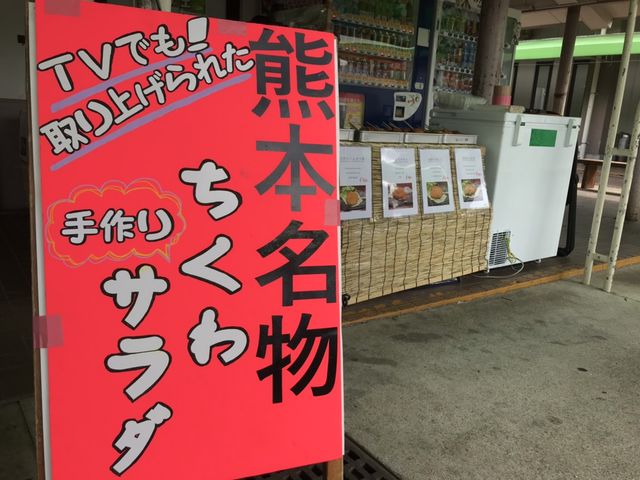 熊本名物
TVでも!
取り上げられた
ちくわ
手作り
サラダ